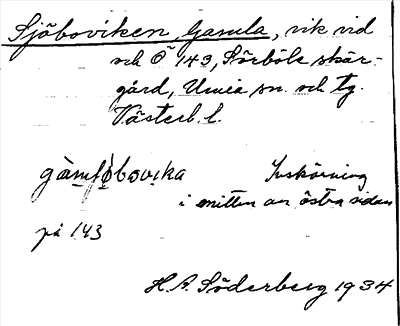 Sjöboviken, Gamla, vik vid
och Ö 143, Sörböle skär-
gård, Umeå sn. och tg.
Västerb. l.
Inskärning
i mitten av östra sidan
på 143
H. A. Söderberg 1934